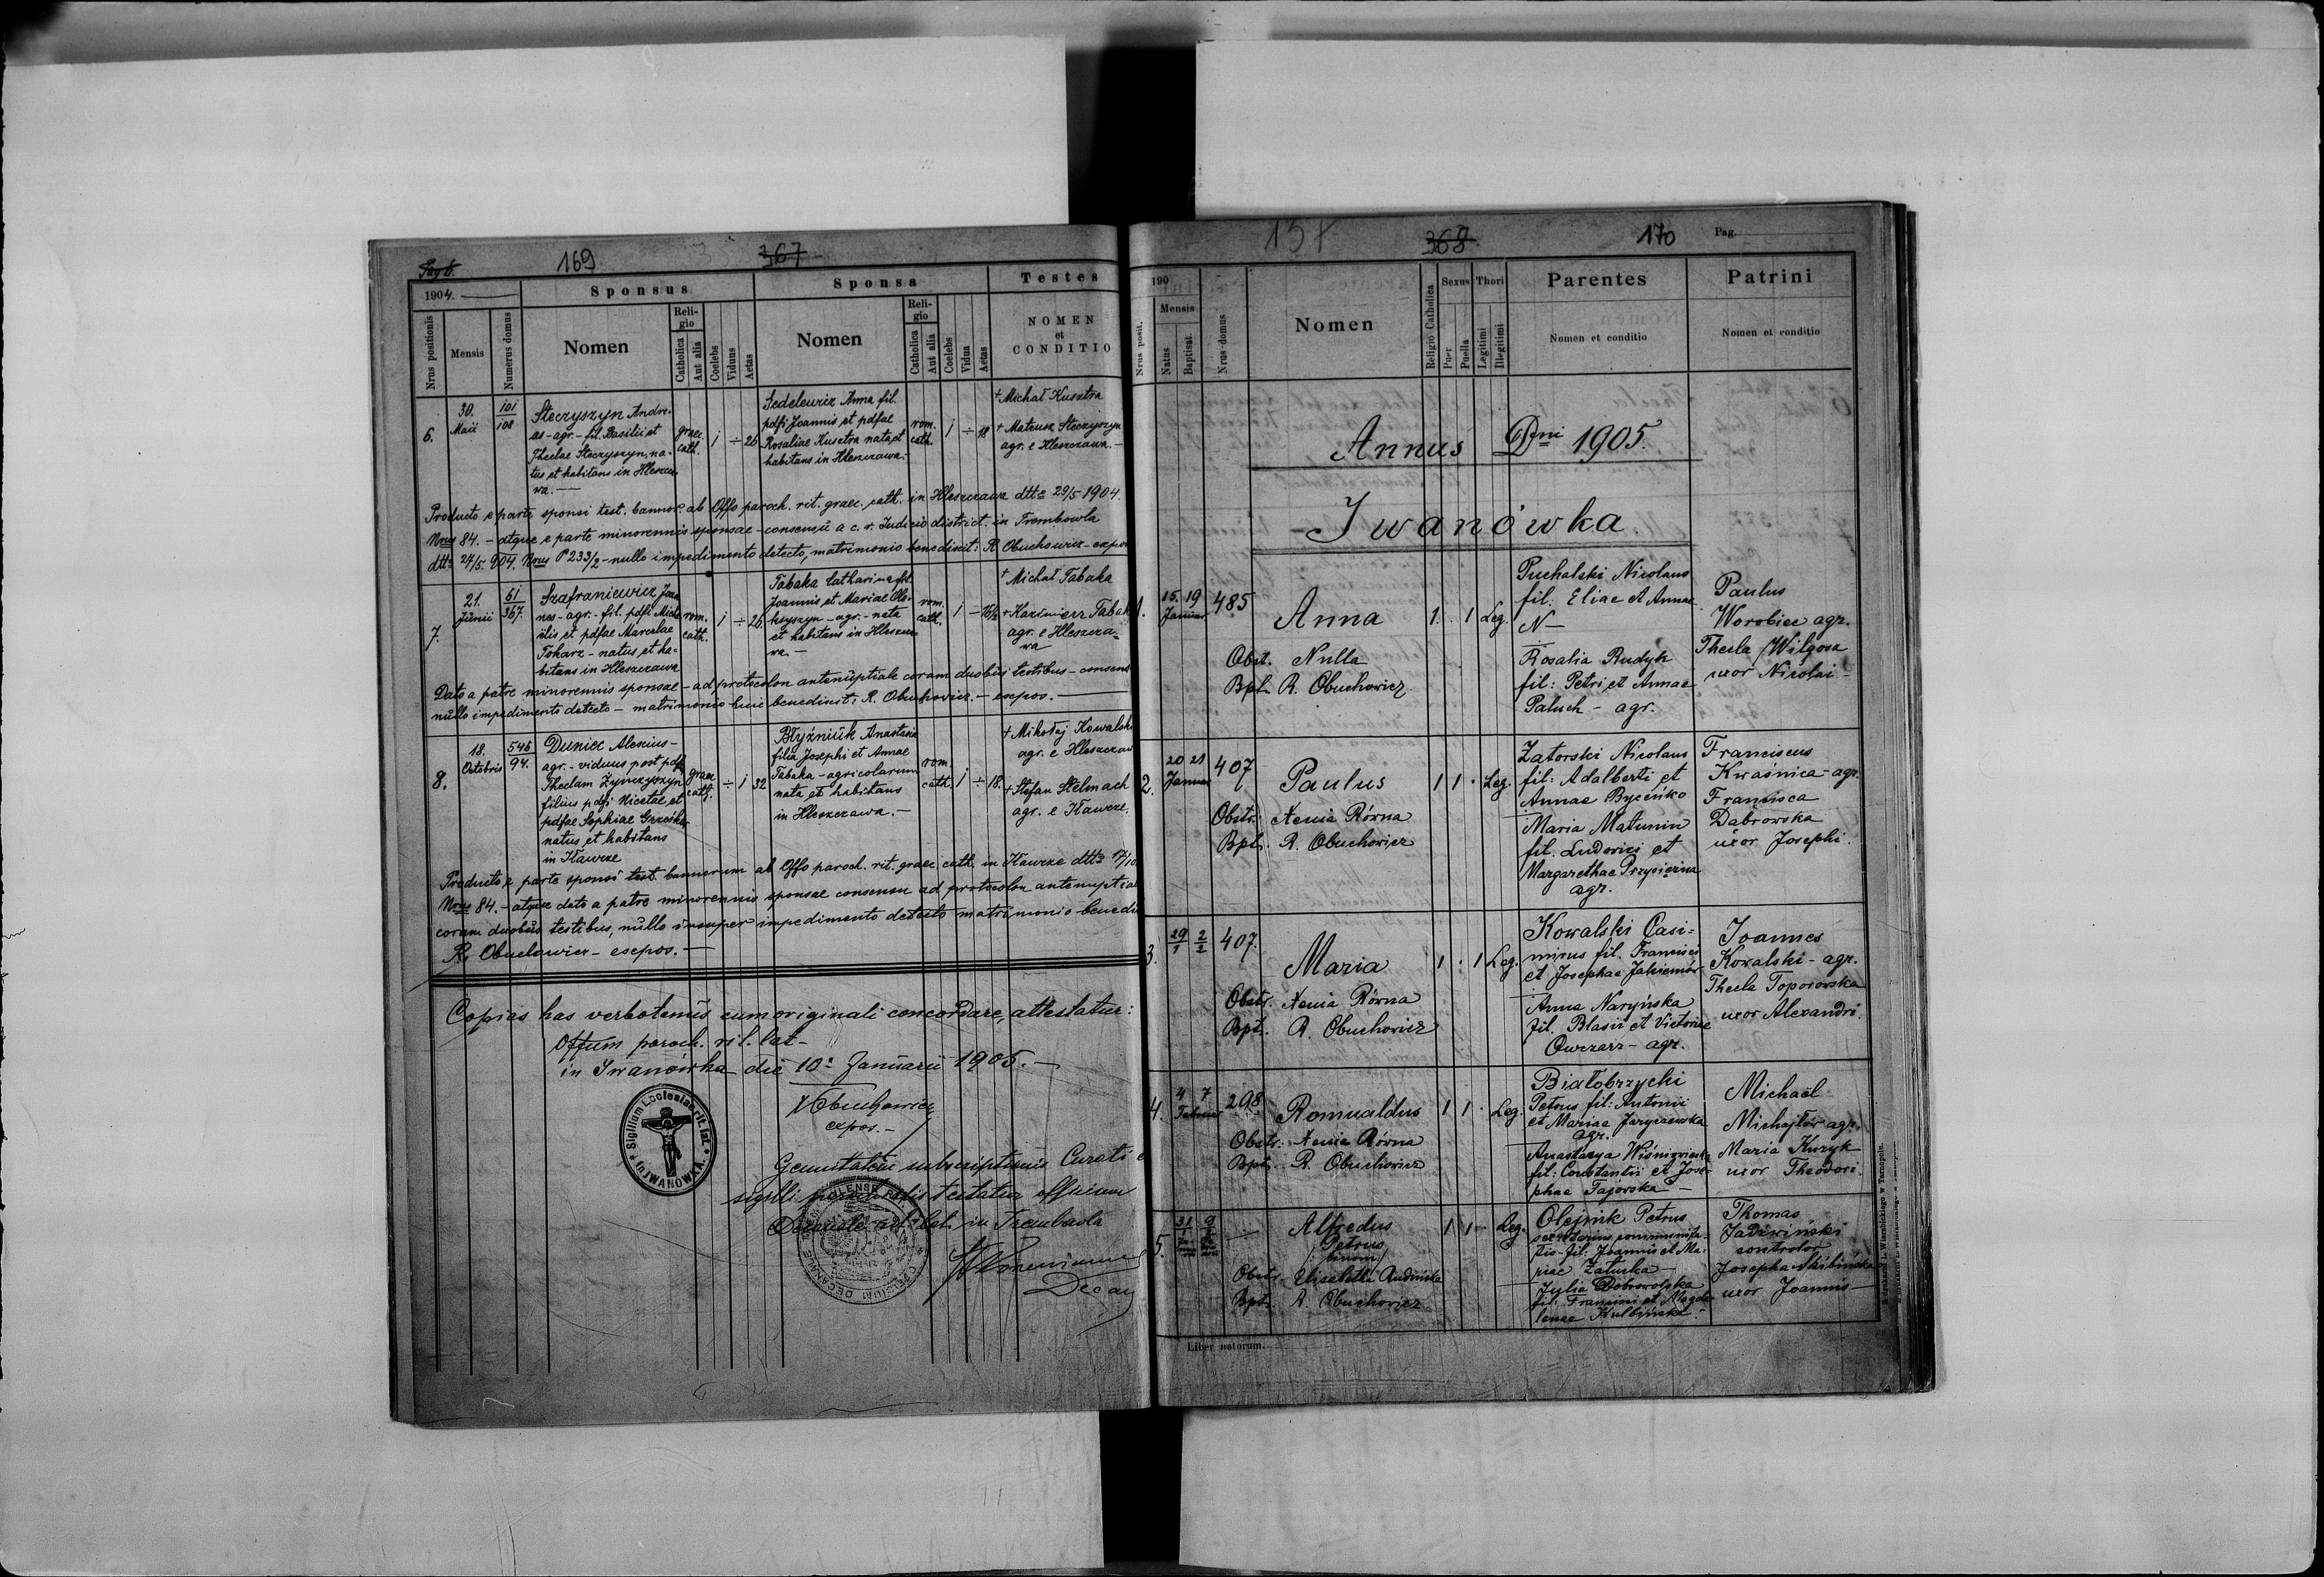 Pag 6.
169
367
1904.
Sponsus
Sponsa
Testes
Nrus positionis
Mensis
Numerus domus
Nomen
Reli-
gio
Catholica
Aut alia
Coelebs
Viduus
Aetas
Nomen
Reli-
gio
Catholica
Aut alia
Coelebs
Vidua
Aetas
NOMEN
et
CONDITIO
6.
30.
Maii
101
108
Steczyszyn Andre-
as - agr. - fil. Basilii et
Theclae Steczyszyn, na-
tus et habitans in Hleszcza-
wa. -
graec.
cath.
1 ÷ 26
Sedelewicz Anna fil.
pdfi Joannis et pdfae
Rosaliae Kusztra nata et
habitans in Hleszczawa. -
rom.
cath.
1 ÷ 18
+ Michał Kusztra
+ Mateusz Steczyszyn
agr. e Hleszczawa. -
Producto e parte sponsi test. bannor. ab Offo paroch. rit. graec. cath. in Hleszczawa dtto 29/5 1904.
Nrus 84. - atque e parte minorennis sponsae - consensu a c. r. Judicio district. in Trembowla
dtto 27/5. 904. Nrus P 233/2 - nullo impedimento detecto, matrimonio benedixit: R. Obuchowicz - expos
7.
21.
Junii
61
367.
Szafraniewicz Joan
nes - agr. - fil. pdfi Micha
ëlis et pdfae Marcelae
Tokarz - natus et ha-
bitans in Hleszczawa
rom.
cath.
1 ÷ 26
Tabaka Catharina fil.
Joannis et Mariae Ole-
kszyszyn - agr. - nata
et habitans in Hleszcza
wa. -
rom.
cath.
1 - 16½
+ Michał Tabaka
+ Kazimierz Tabak
agr. e Hleszcza-
wa
Dato a patre minorennis sponsae - ad protocolon antenuptiale coram duobus testibus - consens
nullo impedimento detecto - matrimonio huic benedixit: R. Obuchowicz. - expos. -
8.
18.
Octobris
546
94.
Duniec Alexius -
agr. - viduus post pdf
Theclam Zymczyszyn
filius pdfi Nicetae et
pdfae Sophiae Grześków
natus et habitans
in Iławcze
graec
cath.
÷ 1 32
Błyźniuk Anastasia
filia Josephi et Annae
Tabaka - agricolarum
nata et habitans
in Hleszczawa. -
rom.
cath.
1 ÷ 18.
+ Mikołaj Kowalski
agr. e Hleszczaw
+ Stefan Stelmach
agr. e Iławcze.
Producto e parte sponsi test. bannorum ab Offo paroch. rit. graec. cath. in Iławcze dtto 17/10
Nrus 84. - atque dato a patre minorennis sponsae consensu ad protocolon antenuptial
coram duobus testibus, nullo insuper impedimento detecto - matrimonio benedi
R. Obuchowicz - expos. -
Copias has verbotenus cum originali concordare, attestatur:
Offum paroch. rit. lat -
in Iwanówka die 10o Januarii 1905. -
RObuchowicz
expos. -
Sigillum Ecclesiae rit. lat.
in IWANÓWKA.
Genuitatem subscriptionis Curati e
sigilli parochialis testatur officium
Decanale rit. lat. in Trembowla
Decan
157
368
170
Pag.
190
Nrus posit.
Mensis
Natus
Baptisat
Nrus domus
Nomen
Religio Catholica
Sexus
Puer
Puella
Thori
Legitimi
Illegitimi
Parentes
Nomen et conditio
Patrini
Nomen et conditio
Annus Dni 1905.
Iwanówka.
1.
15. 19
Januar
485
Anna
1 . 1 Leg.
Puchalski Nicolaus
fil. Eliae et Annae
N -
Rosalia Rudyk
fil: Petri et Annae
Paluch - agr.
Paulus
Worobiec agr.
Thecla Wilgosa
uxor Nicolai -
Obst. Nulla
Bpt. R. Obuchowicz
2.
20 21
Januar
407
Paulus
1 1 . Leg.
Zatorski Nicolaus
fil: Adalberti et
Annae Byceńko
Maria Matunin
fil. Ludovici et
Margarethae Przysiężna
agr.
Franciscus
Kwaśnica - agr.
Francisca
Dąbrowska
uxor Josephi.
Obstr. Xenia Równa
Bpt. R. Obuchowicz
3.
29 2
1 2
407.
Maria
1 . 1 Leg.
Kowalski Casi-
mirus fil. Francisci
et Josephae Jakimów
Anna Naryńska
fil. Blasii et Victoriae
Owczarz - agr.
Joannes
Kowalski - agr.
Thecla Toporowska
uxor Alexandri.
Obstr. Xenia Równa
Bpt. R. Obuchowicz
4.
4 7
Februar
298
Romualdus
1 1 . Leg.
Białobrzycki
Petrus fil: Antonii
et Mariae Jaryczewska
agr.
Anastazya Wiśniowiecka
fil: Constantii et Jose-
phae Tajorska -
Michaël
Michajłów agr.
Maria Kuzyk
uxor Theodori.
Obstr. Xenia Równa
Bpt. R. Obuchowicz
5.
31 9
1 2
Alfredus
Petrus
(binom)
1 1 - Leg.
Olejnik Petrus
secretarius communita-
tis - fil: Joannis et Ma-
riae Załuska -
Julia Dobrowolska
fil: Francisci et Magda-
lenae Kulbińska.
Thomas
Jadźwiński
controlor
Josepha Skibińska
uxor Joannis -
Obstr. Elisabetha Rudnicka
Bpt. R. Obuchowicz
Liber natorum.
Z drukarni L. Wierzbickiego w Tarnopolu.